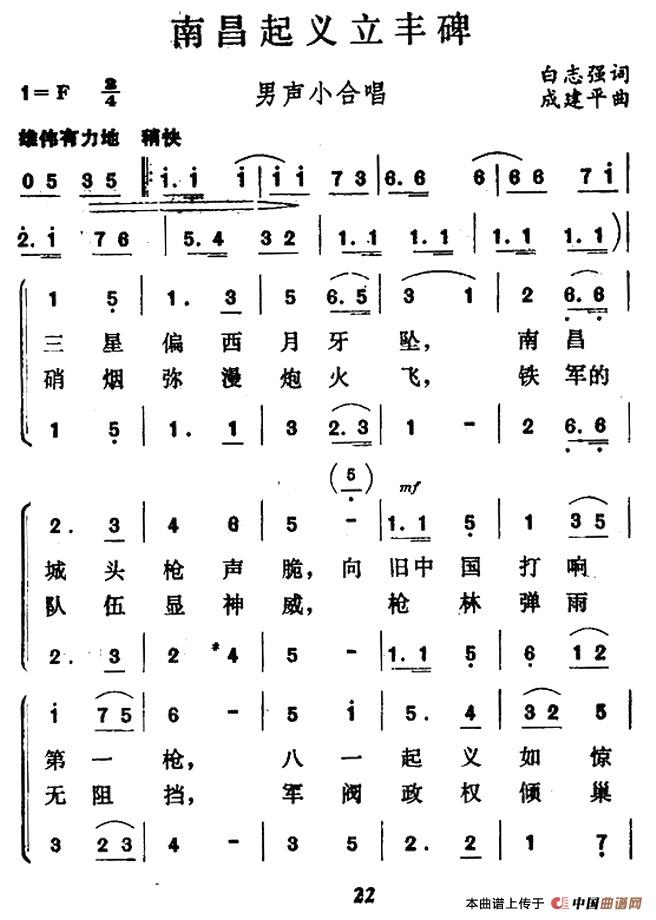 南昌起义立丰碑
1=F 2/4 男声小合唱 白志强词
成建平曲
雄伟有力地 稍快
0 5 3 5 i. i i i i 7 3 6. 6 6 6 6 7 i
2. i 7 6 5. 4 3 2 1. 1 1. 1 1. 1 1. 1
1 5 1. 3 5 6. 5 3 1 2 6. 6
三星偏西月牙坠，南昌
硝烟弥漫炮火飞，铁军的
1 5 1. 1 3 2. 3 1 - 2 6. 6
(5) mf
2. 3 4 6 5 - 1. 1 5 1 3 5
城头枪声脆，向旧中国打响
队伍显神威，枪林弹雨
2. 3 2 #4 5 - 1. 1 5 6 1 2
i 7 5 6 - 5 i 5. 4 3 2 5
第一枪，八一起义如惊
无阻挡，军阀政权倾巢
3 2 3 4 - 3 5 2. 2 1 7
22
本曲谱上传于 中国曲谱网